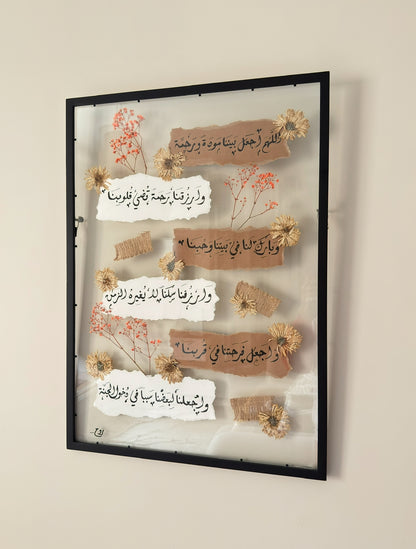 اللهم اجعل بيننا مودة ورحمة
وارزقنا رحمة تضيء قلوبنا
وبارك لنا في بيتنا وحبنا
وارزقنا سكنا لا يغيره الزمن
واجعل فرحتنا في قربنا
واجعلنا لبعضنا سببا في دخول الجنة